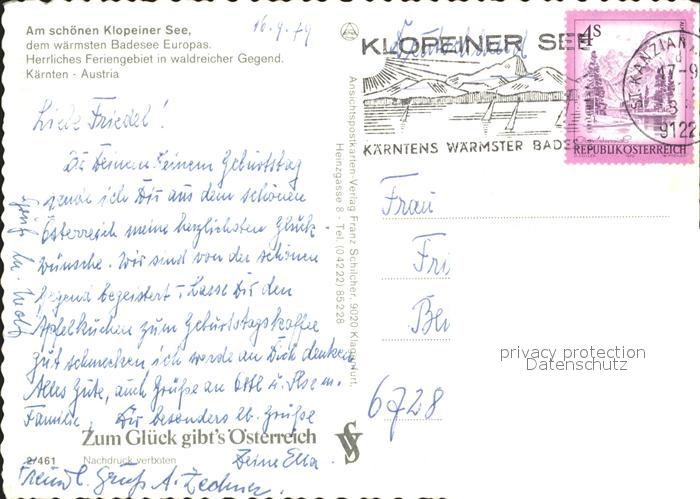 Am schönen Klopeiner See,
dem wärmsten Badesee Europas.
Herrliches Feriengebiet in waldreicher Gegend.
Kärnten - Austria
16.9.79
Liebe Friedel!
Zu Deinem Geburtstag
sende ich Dir aus dem schönen
Österreich meine herzlichsten Glück-
wünsche. Wir sind von der schönen
Gegend begeistert. Lasse Dir den
Apfelkuchen zum Geburtstagskaffee
gut schmecken, ich werde an Dich denken
Alles Gute, auch Grüße an u. Ilse m.
Familie, Dir besonders lb. Grüße
Zum Glück gibt's Österreich
2/461 Nachdruck verboten
Deine Ella.
Freundl. Gruß A.
Ansichtspostkarten-Verlag Franz Schilcher, 9020 Klagenfurt,
Heinzgasse 8 - Tel. (04222) 85228
KLOPEINER SEE
KÄRNTENS WÄRMSTER BADE
4S
REPUBLIK ÖSTERREICH
ST. KANZIAN
9122
Frau
Fri
6728
privacy protection
Datenschutz